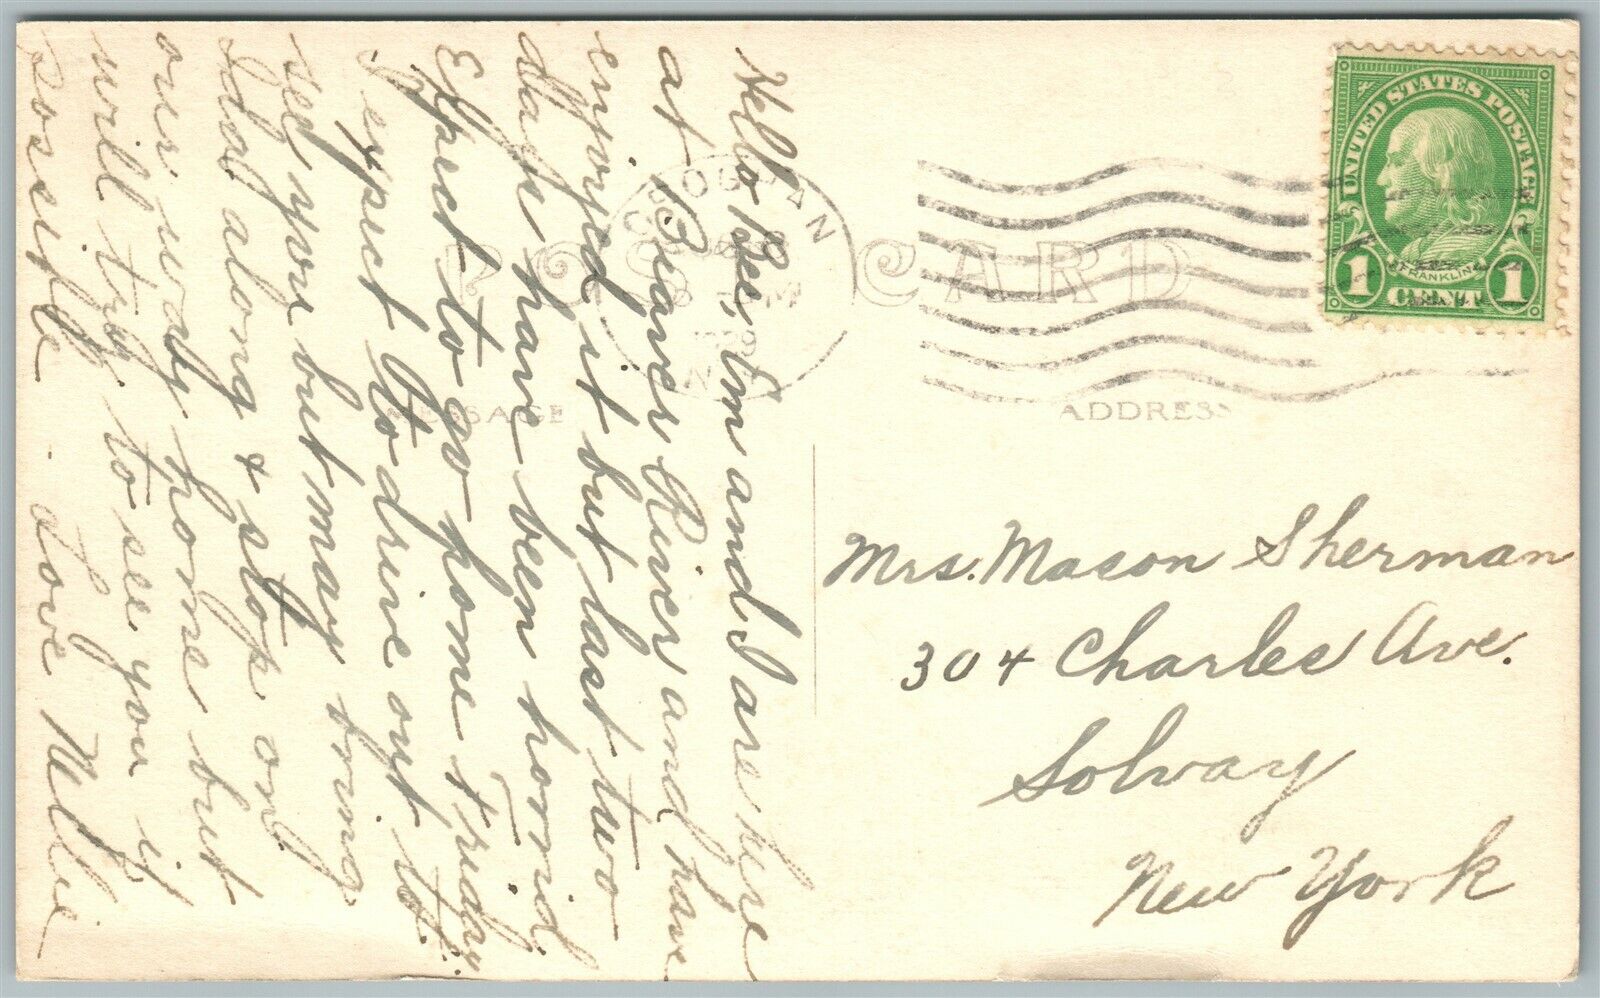 Hello Bee, Em and I are here
at Beaver River and have
enjoyed it but last two
days have been horrid
Expect to go home Friday.
I expect Ado drive out to
see you but may bring
Ida along & stop on
our way home but
will try to see you if
possible - Love Nellie
POST CARD
MESSAGE
ADDRESS
CROGHAN
N.Y.
UNITED STATES POSTAGE
FRANKLIN
1 CENT 1
Mrs. Mason Sherman
304 Charles Ave.
Solvay
New York